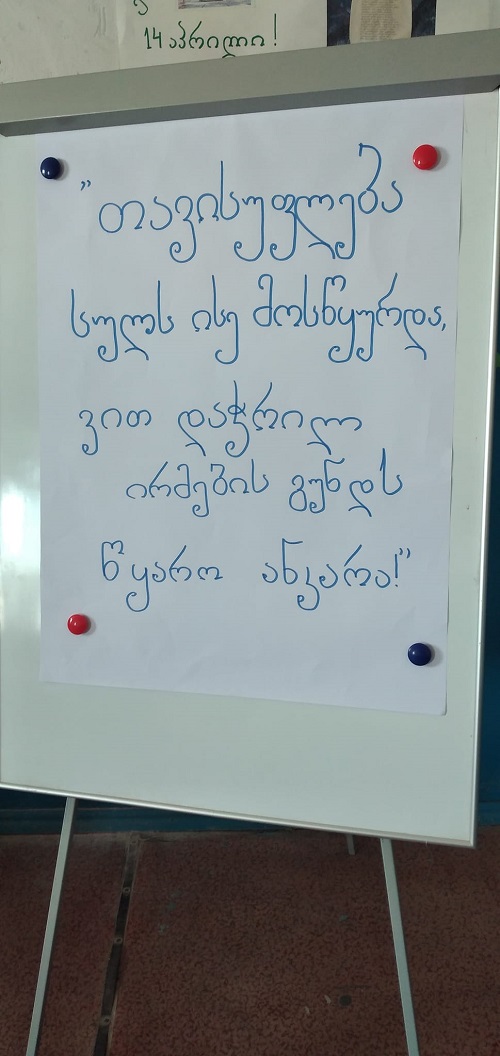 14 აპრილი!
"თავისუფლება
სულს ისე მოსწყურდა,
ვით დაჭრილ
ირმების გუნდს
წყარო ანკარა!"